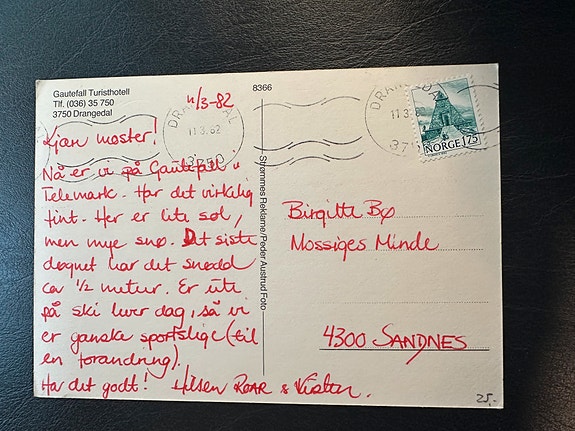 Gautefall Turisthotell
Tlf. (036) 35 750
3750 Drangedal
11/3-82
8366
DRANGEDAL
11.3.82
3750
DRANGEDAL
11.3
375
NORGE 175
Kjære moster!
Nå er vi på Gautefall i
Telemark. Har det virkelig
fint. Her er lite sol,
men mye snø. Det siste
døgnet har det snødd
ca 1/2 meter. Er ute
på ski hver dag, så vi
er ganske sportslige (til
en forandring).
Ha det godt! Hilsen ROAR &
Strømmes Reklame/Peder Austrud Foto
Birgitte Bø
Mossiges Minde
4300 SANDNES
25,-